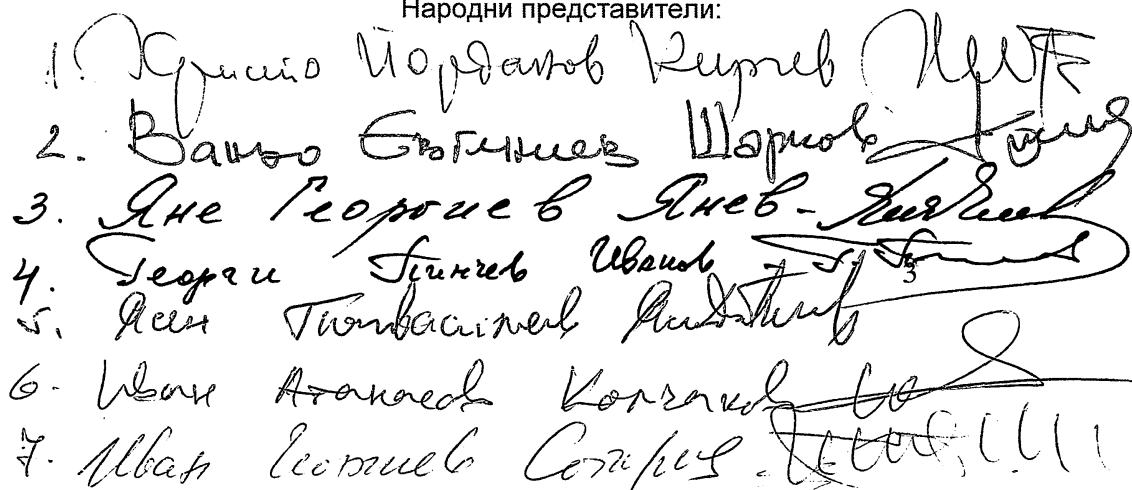 Народни представители:
1. Христо Йорданов Кирчев
2. Ваньо Евгениев Шарков
3. Яне Георгиев Янев -
4. Георги Пинчев Иванов
5. Ясен
6. Иван Атанасов Колчаков
7. Иван Георгиев Сотиров
3